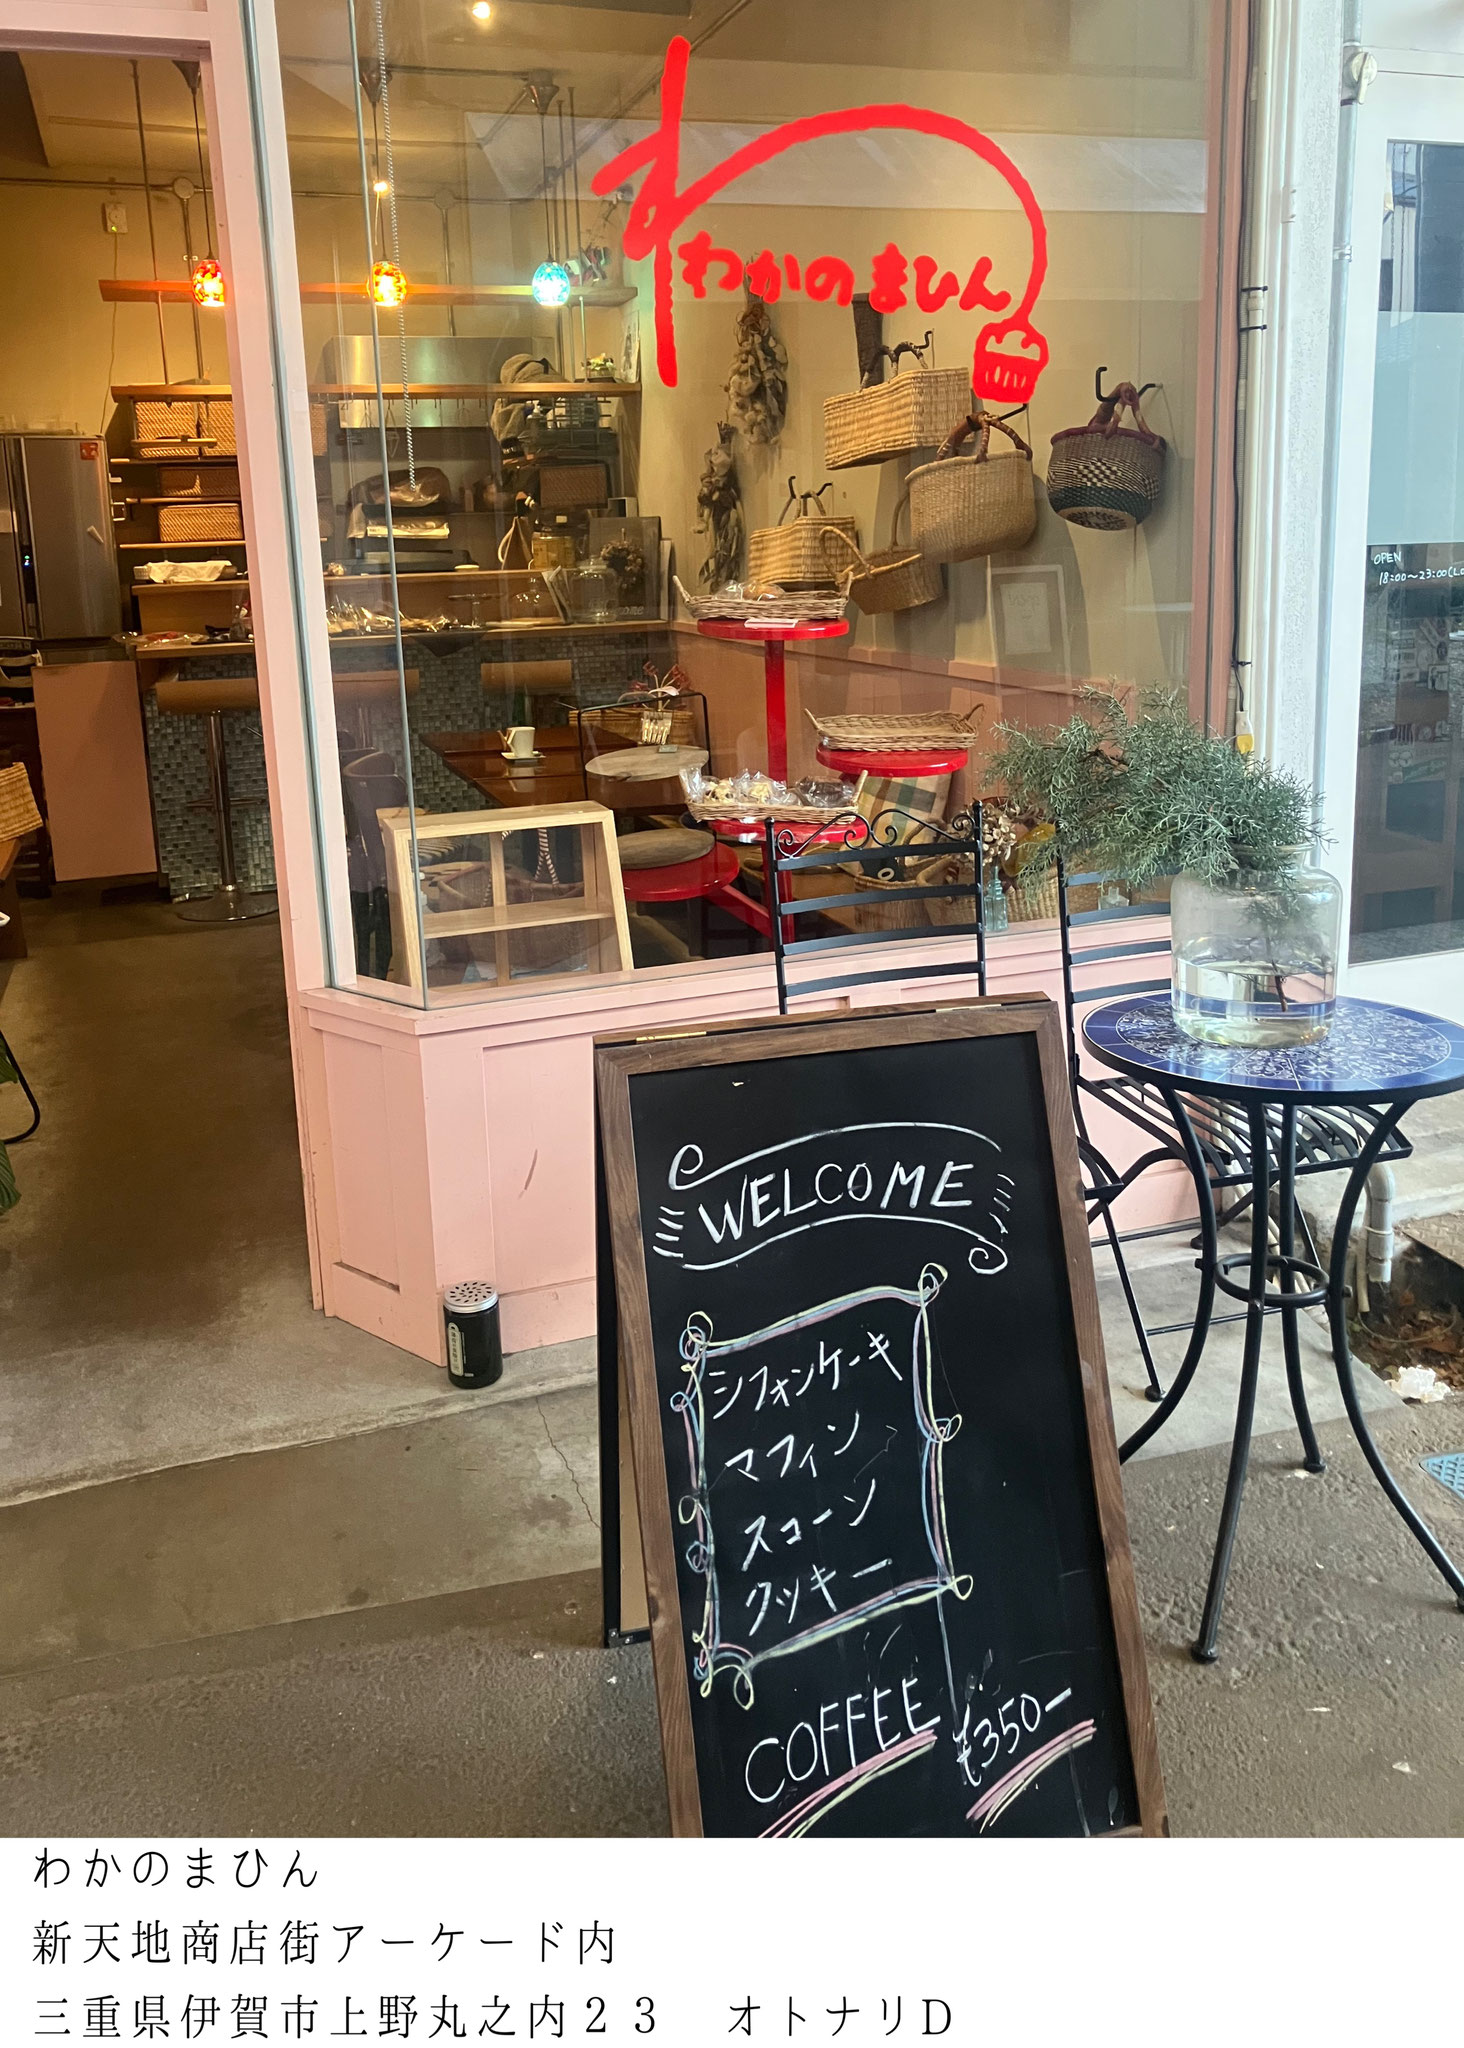 わ
わかのまひん
OPEN
18:00～23:00(L.O
WELCOME
シフォンケーキ
マフィン
スコーン
クッキー
COFFEE ¥350-
わかのまひん
新天地商店街アーケード内
三重県伊賀市上野丸之内２３　オトナリD